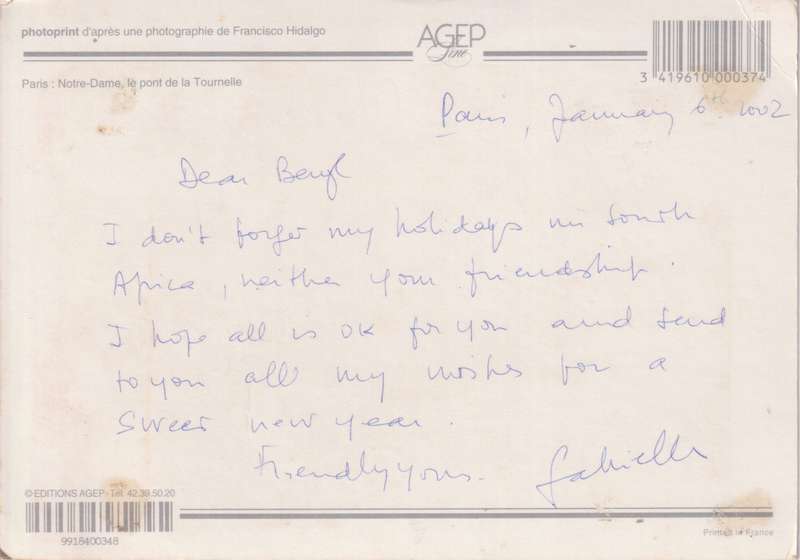 photoprint d'après une photographie de Francisco Hidalgo
AGEP
Fine
3 419610 000374
Paris : Notre-Dame, le pont de la Tournelle
Paris, January 6th 2002
Dear Beryl
I don't forget my holidays in South
Africa, neither your friendship.
I hope all is OK for you and send
to you all my wishes for a
Sweet new year.
Friendly yours. Gabrielle
© EDITIONS AGEP - Tél. 42.39.50.20
9918400348
Printed in France